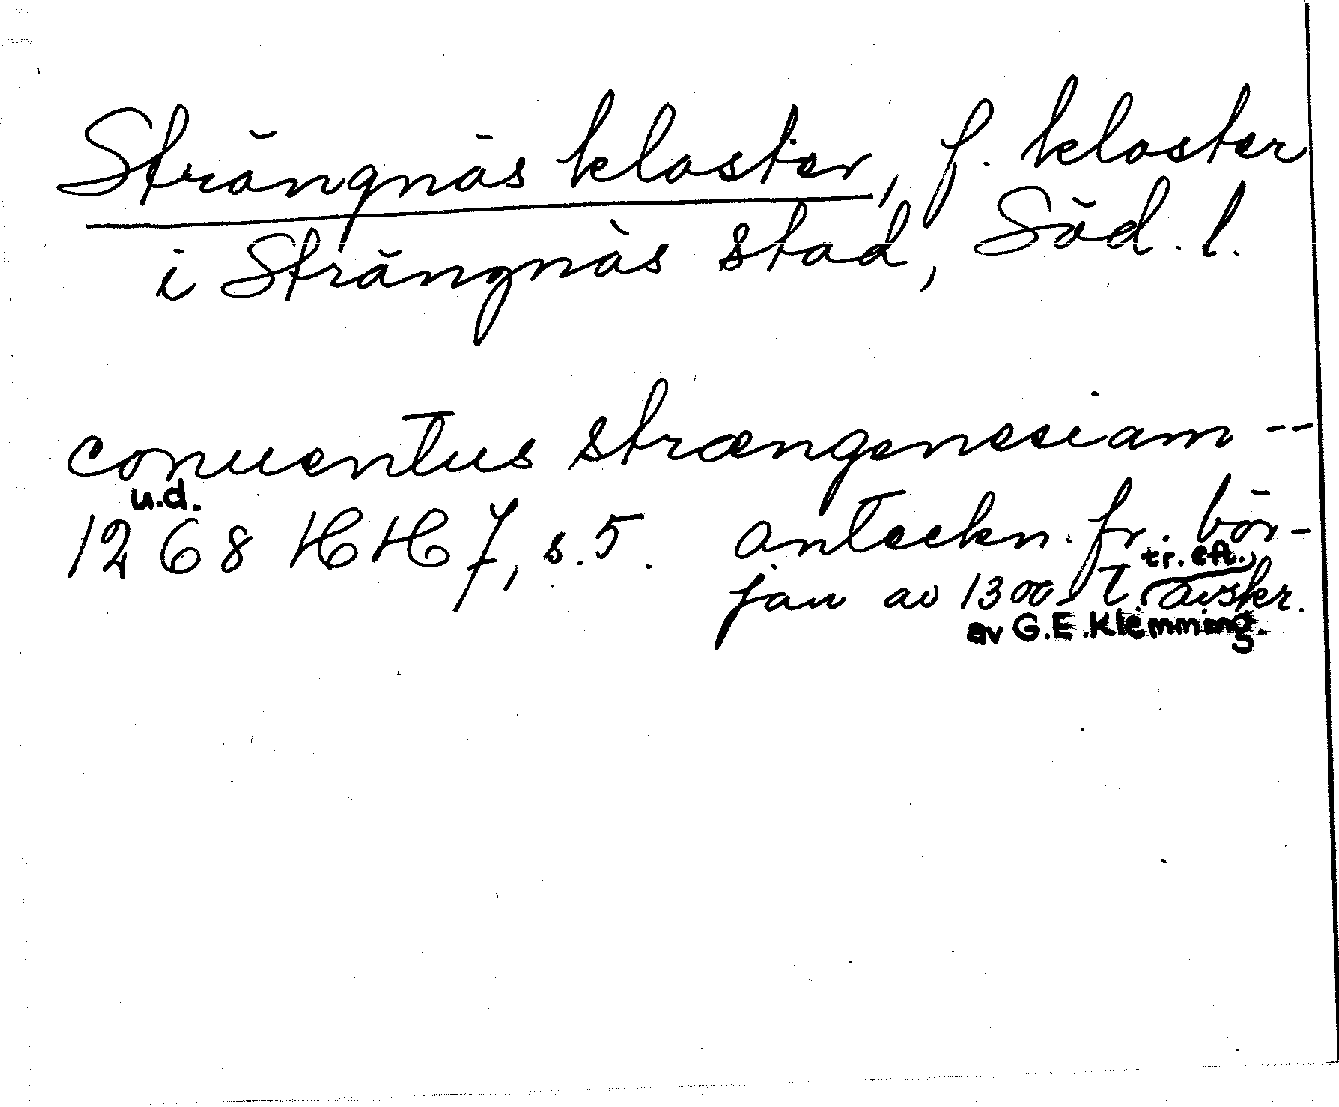 Strängnäs kloster, f. kloster
i Strängnäs stad, Söd. l.
conuentus strængenesiam --
u.d.
1268 HH 7, s. 5. anteckn. fr. bör-
tr. eft.
jan av 1300-t. avskr.
av G.E. Klemming.